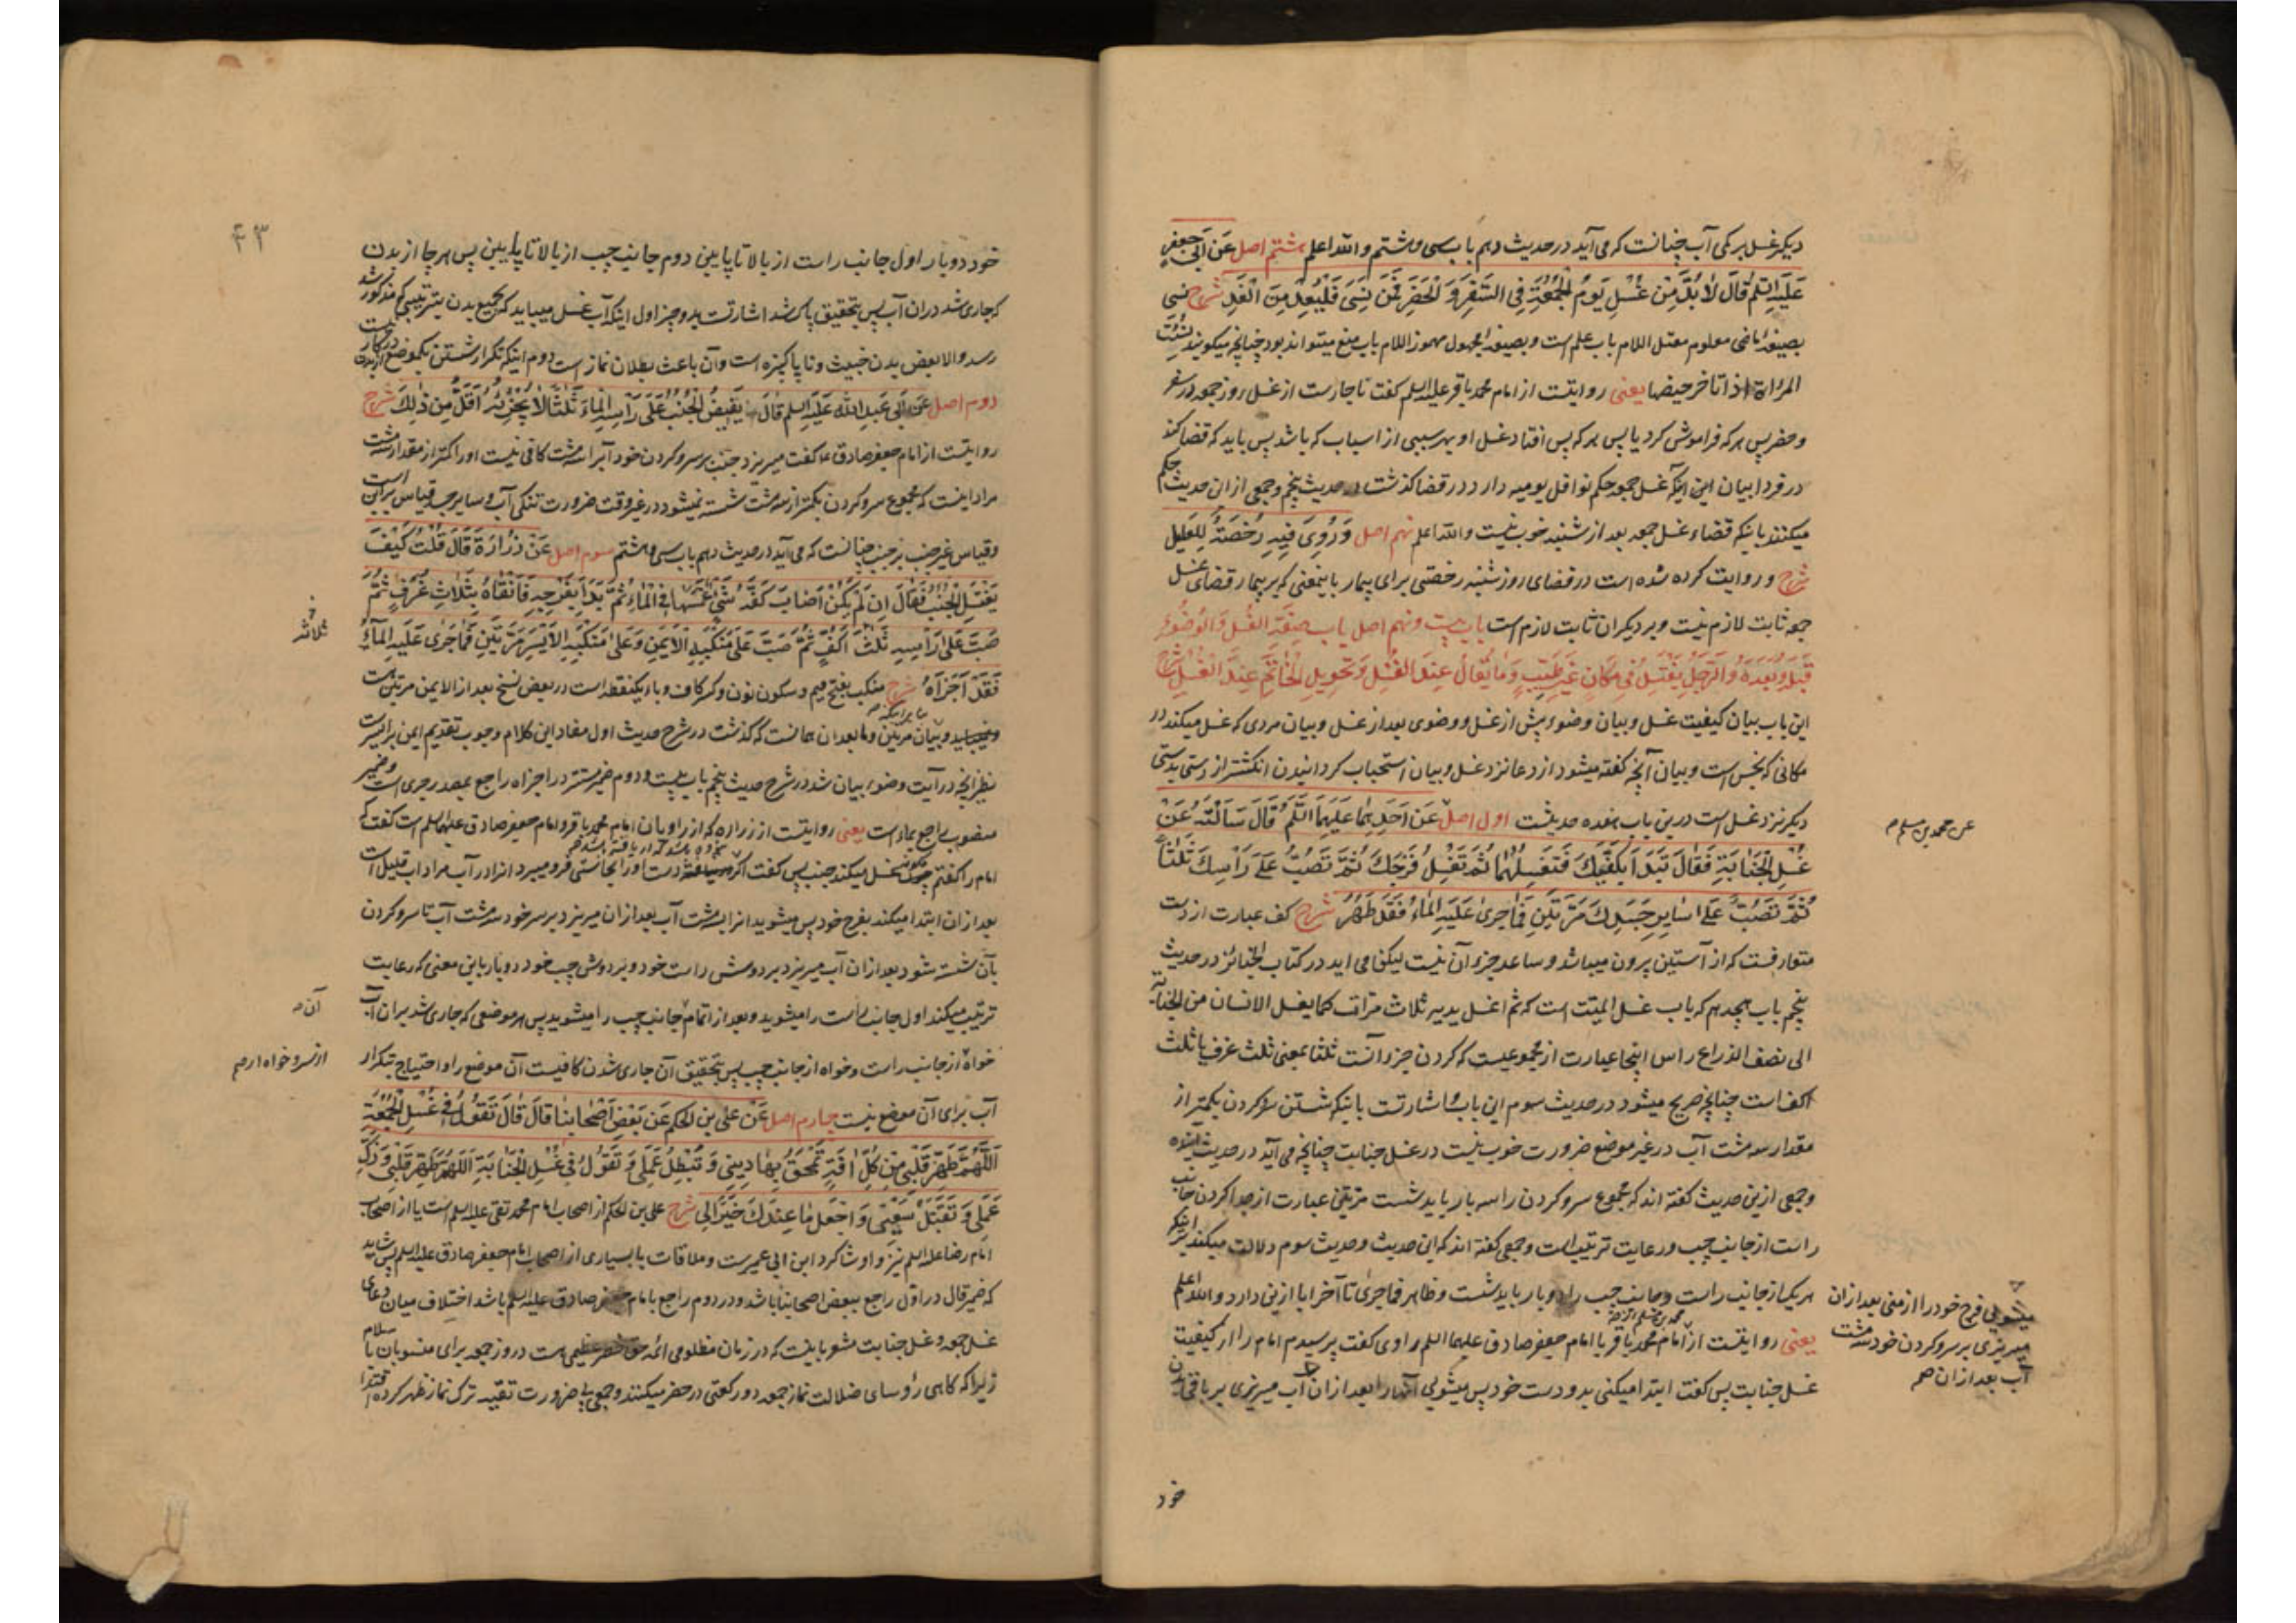 دیگر غسل بر کمی آب چنانست که می آید در حدیث دهم باب سی و هشتم والله اعلم هشتم اصل عَن اَبی جَعفرٍ
عَلَیهِ السَّلم قٰالَ لٰا بُدَّ مِن غُسْلِ یَومِ الجُمُعَةِ فِی السَّفَرِ وَ الْحَضَرِ فَمَن نَسِیَ فَلْیُعِدْ مِنَ الْغَدِ شرح نسی
بصیغهٔ ماضی معلوم معتل اللام باب علم است و بصیغهٔ مجهول مهموز اللام باب منع میتواند بود چنانچه میکویند نُسِئَت
المراة اذا تاخر حیضها یعنی روایتست از امام محمد باقر علیه السلم گفت ناچارست از غسل روز جمعه در سفر
و حضر پس هر که فراموش کرد یا پس هر که پس افتاد غسل او بهر سببی از اسباب که باشد پس باید که قضا کند
در فردا بیان این اینکه غسل جمعه حکم نوافل یومیه دارد در قضا گذشت در حدیث پنجم و جمعی از این حدیث حکم
میکنند باینکه قضاء غسل جمعه بعد از شنبه خوب نیست والله اعلم نهم اصل وَ رُوِیَ فیهِ رُخصَةٌ لِلعَلیلِ
شرح و روایت کرده شده است در قضای روز شنبه رخصتی برای بیمار باینمعنی که بر بیمار قضای غسل
جمعه ثابت لازم نیست و بر دیگران ثابت لازم است باب بیست و نهم اصل باب صِفَةِ الغُسلِ وَ الوُضُوءِ
قَبلَهُ وَ بَعدَهُ وَ الرَّجُلِ یَغتَسِلُ فی مَکانٍ غَیرِ طَیِّبٍ وَ مٰا یُقالُ عِندَ الغُسلِ وَ تَحویلِ الخٰاتَمِ عِندَ الغُسلِ شرح
این باب بیان کیفیت غسل و بیان وضوء پیش از غسل و وضوی بعد از غسل و بیان مردی که غسل میکند در
مکانی که نجس است و بیان آنچه گفته میشود از دعا نزد غسل و بیان استحباب گردانیدن انگشتر از دستی بدستی
دیگر نزد غسل است درین باب هفده حدیثست اول اصل عَن اَحَدِهِمٰا عَلَیهِمَا السَّلم قٰالَ سَاَلتُهُ عَن
عن محمد بن مسلم صح
غُسلِ الجَنٰابَةِ فَقٰالَ تَبدَأُ بِکَفَّیکَ فَتَغسِلُهُمٰا ثُمَّ تَغسِلُ فَرجَکَ ثُمَّ تَصُبُّ عَلیٰ رَاسِکَ ثَلٰثاً
ثُمَّ تَصُبُّ عَلیٰ سٰایِرِ جَسَدِکَ مَرَّتَینِ فَمٰا جَریٰ عَلَیهِ المٰاءُ فَقَد طَهُرَ شرح کف عبارت از دست
متعارفست که از آستین بیرون میباشد و ساعد جزء آن نیست لیکن می اید در کتاب الجنائز در حدیث
پنجم باب هجدهم که باب غسل المیت است که ثم اغسل یدیه ثلاث مرات کما یغسل الانسان من الجنابة
الی نصف الذراع راس اینجا عبارت از مجموعیست که گردن جزء آنست ثلثا بمعنی ثلث غرف یا ثلث
اکف است چنانچه صریح میشود در حدیث سوم این باب و اشارتست باینکه شستن سر و گردن بکمتر از
مقدار سه مشت آب در غیر موضع ضرورت خوب نیست در غسل جنابت چنانچه می آید در حدیث آینده
و جمعی ازین حدیث گفته اند که مجموع سر و گردن را سه بار باید شست مرتین عبارت از جدا کردن جانب
راست از جانب چپ و رعایت ترتیب است و جمعی گفته اند که این حدیث و حدیث سوم دلالت میکند بر اینکه
هر یک از جانب راست و جانب چپ را دو بار باید شست و ظاهر فما جری تا آخر ابا ازین دارد والله اعلم
یعنی روایتست از امام محمد باقر یا امام جعفر صادق علیهما السلم راوی گفت پرسیدم امام را از کیفیت
غسل جنابت پس گفت ابتدا میکنی بدو دست خود پس میشویی آنها را بعد از ان آب میریزی بر باقی بدن
میشویی فرج خود را از منی بعد از ان
میریزی بر سر و گردن خود سه مشت
آب بعد از ان صح
خود
۴۳
خود دو بار اول جانب راست از بالا تا پایین دوم جانب چپ از بالا تا پایین پس هر جا از بدن
که جاری شد در ان آب پس بتحقیق پاک شد اشارتست بدو چیز اول اینکه آب غسل میباید که بجمیع بدن بترتیبی که مذکور شد
رسد والا بعض بدن خبیث و ناپاکیزه است و آن باعث بطلان نماز است دوم اینکه تکرار شستن یکموضع از بدن در کار نیست
دوم اصل عَن اَبی عَبدِ اللّٰه عَلَیهِ السلم قٰالَ یُفیضُ الجُنُبُ عَلیٰ رَأسِهِ المٰاءَ ثَلٰثاً لٰا یُجزِئُهُ اَقَلُّ مِن ذٰلِکَ شرح
روایتست از امام جعفر صادق ع گفت میریزد جنب بر سر و گردن خود آب را سه مشت کافی نیست او را کمتر از مقدار سه مشت
مراد اینست که مجموع سر و گردن بکمتر از سه مشت شسته نمیشود در غیر وقت ضرورت تنگی آب و سایر جسد قیاس بر این است
و قیاس غیر جنب بر جنب چنانست که می آید در حدیث دهم باب سی و هشتم سوم اصل عَن زُرٰارَةَ قٰالَ قُلتُ کَیفَ
یَغتَسِلُ الجُنُبُ فَقٰالَ اِن لَم یَکُن اَصٰابَ کَفَّهُ شَیءٌ غَمَسَهٰا فِی المٰاءِ ثُمَّ بَدَأَ بِفَرجِهِ فَاَنقٰاهُ بِثَلٰاثِ غُرَفٍ ثُمَّ
صَبَّ عَلیٰ رَأسِهِ ثَلٰثَ اَکُفٍّ ثُمَّ صَبَّ عَلیٰ مَنکِبِهِ الاَیمَنِ وَ عَلیٰ مَنکِبِهِ الاَیسَرِ مَرَّتَینِ فَمٰا جَریٰ عَلَیهِ المٰآءُ
فَقَد اَجزَاَهُ شرح منکب بفتح میم و سکون نون و کسر کاف و باء یکنقطه است در بعض نسخ بعد از الایمن مرتین است
و بیان مرتین و ما بعد ان همانست که گذشت در شرح حدیث اول مفاد این کلام وجوب تقدیم ایمن بر ایسر است
نظیر آنچه در آیت وضوء بیان شد در شرح حدیث پنجم باب بیست و دوم ضمیر مستتر در اجزاه راجع بمصدر جری است و ضمیر
منصوب راجع بماء است یعنی روایتست از زراره که از راویان امام محمد باقر و امام جعفر صادق علیهما السلم است گفت که
امام را گفتم چگونه غسل میکند جنب پس گفت اگر دست او را نجاستی فرو میبرد انرا در آب مراد آب قلیل است
بعد از ان ابتدا میکند بفرج خود پس میشوید انرا بسه مشت آب بعد از ان میریزد بر سر خود سه مشت آب تا سر و گردن
بآن شسته شود بعد از ان آب میریزد بر دوش راست خود و بر دوش چپ خود دو بار باین معنی که رعایت
ترتیب میکند اول جانب راست را میشوید و بعد از اتمام جانب چپ را میشوید پس هر موضعی که جاری شد بر ان آب
آن صح
خواه از جانب راست و خواه از جانب چپ پس بتحقیق آن جاری شدن کافیست آن موضع را و احتیاج بتکرار
از سر و خواه از صح
آب برای آن موضع نیست چهارم اصل عَن عَلیِّ بنِ الحَکَمِ عَن بَعضِ اَصحٰابِنٰا قٰالَ قٰالَ تَقُولُ فی غُسلِ الجُمُعَةِ
اَللّٰهُمَّ طَهِّر قَلبی مِن کُلِّ اٰفَةٍ تَمحَقُ بِهٰا دینی وَ تُبطِلُ عَمَلی وَ تَقُولُ فی غُسلِ الجَنٰابَةِ اَللّٰهُمَّ طَهِّر قَلبی وَ زَکِّ
عَمَلی وَ تَقَبَّل سَعیی وَ اجعَل مٰا عِندَکَ خَیراً لی شرح علی بن الحکم از اصحاب امام محمد تقی علیه السلم است یا از اصحاب
امام رضا علیه السلم نیز و او شاگرد ابن ابی عمیرست و ملاقات با بسیاری از اصحاب امام جعفر صادق علیه السلم پس شاید
که ضمیر قال در اوّل راجع ببعض اصحابنا باشد و در دوم راجع بامام جعفر صادق علیه السلم باشد اختلاف میان دعای
غسل جمعه و غسل جنابت مشعر باینست که در زمان مظلومی ائمه حق خطر عظیمی هست در روز جمعه برای منسوبان با سلام
زیرا که گاهی رؤسای ضلالت نماز جمعه دو رکعتی در حضر میکنند و جمعی بی ضرورت تقیه ترک نماز ظهر کرده اقتدا